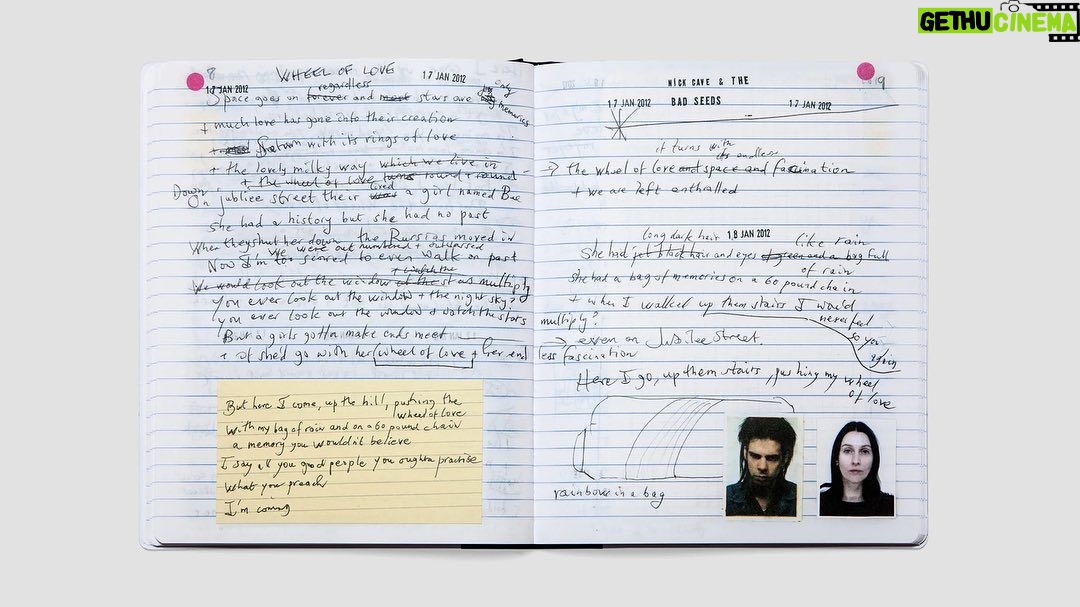 GETHUCINEMA
8
WHEEL OF LOVE
17 JAN 2012
17 JAN 2012
regardless
Space goes on forever and most stars are only
memories
+ much love has gone into their creation
+ Saturn with its rings of love
+ the lovely milky way which we live in
+ the wheel of love turns round + round
Down lived
On jubliee street their was a girl named Bee
she had a history but she had no past
When they shut her down the Russias moved in
We were out numbered + outsourced
Now I'm too scared to even walk on past
+ watch the
We would look out the window at the stars multiply
You ever look out the window + the night sky?
you ever look out the window + watch the stars
But a girls gotta make ends meet
+ if she'd go with her wheel of love + her end
But here I come, up the hill, pushing the
wheel of love
With my bag of rain and on a 60 pound chain
a memory you wouldn't believe
I say all you good people you oughta practise
what you preach
I'm coming
9
NICK CAVE & THE
BAD SEEDS
17 JAN 2012
17 JAN 2012
it turns with
its endless
→ the wheel of love and space and fascination
+ we are left enthralled
long dark hair 18 JAN 2012 like rain
She had jet black hair and eyes of green and a bag full
of rain
she had a bag of memories on a 60 pound chain
+ when I walked up them stairs I would
never feel
so young
again
multiply?
→ even on Jubilee Street.
less fascination
Here I go, up them stairs, pushing my wheel
of love
rainbow in a bag